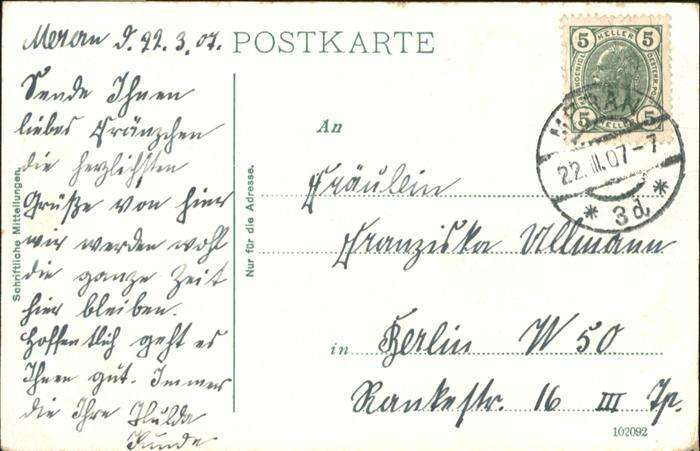 Meran d. 22.3.07.
POSTKARTE
Sende Ihnen
liebes Fränzchen
die herzlichsten
Grüße von hier
wir werden wohl
die ganze Zeit
hier bleiben.
Hoffentlich geht es
Ihnen gut. Immer
die Ihre Hulda
Schriftliche Mitteilungen.
Nur für die Adresse.
An
Fräulein
Franziska Ullmann
in Berlin W 50
Rankestr. 16 III Tp.
102092
5 HELLER 5
5 HELLER 5
MERAN
22.III.07-7
* 3d *